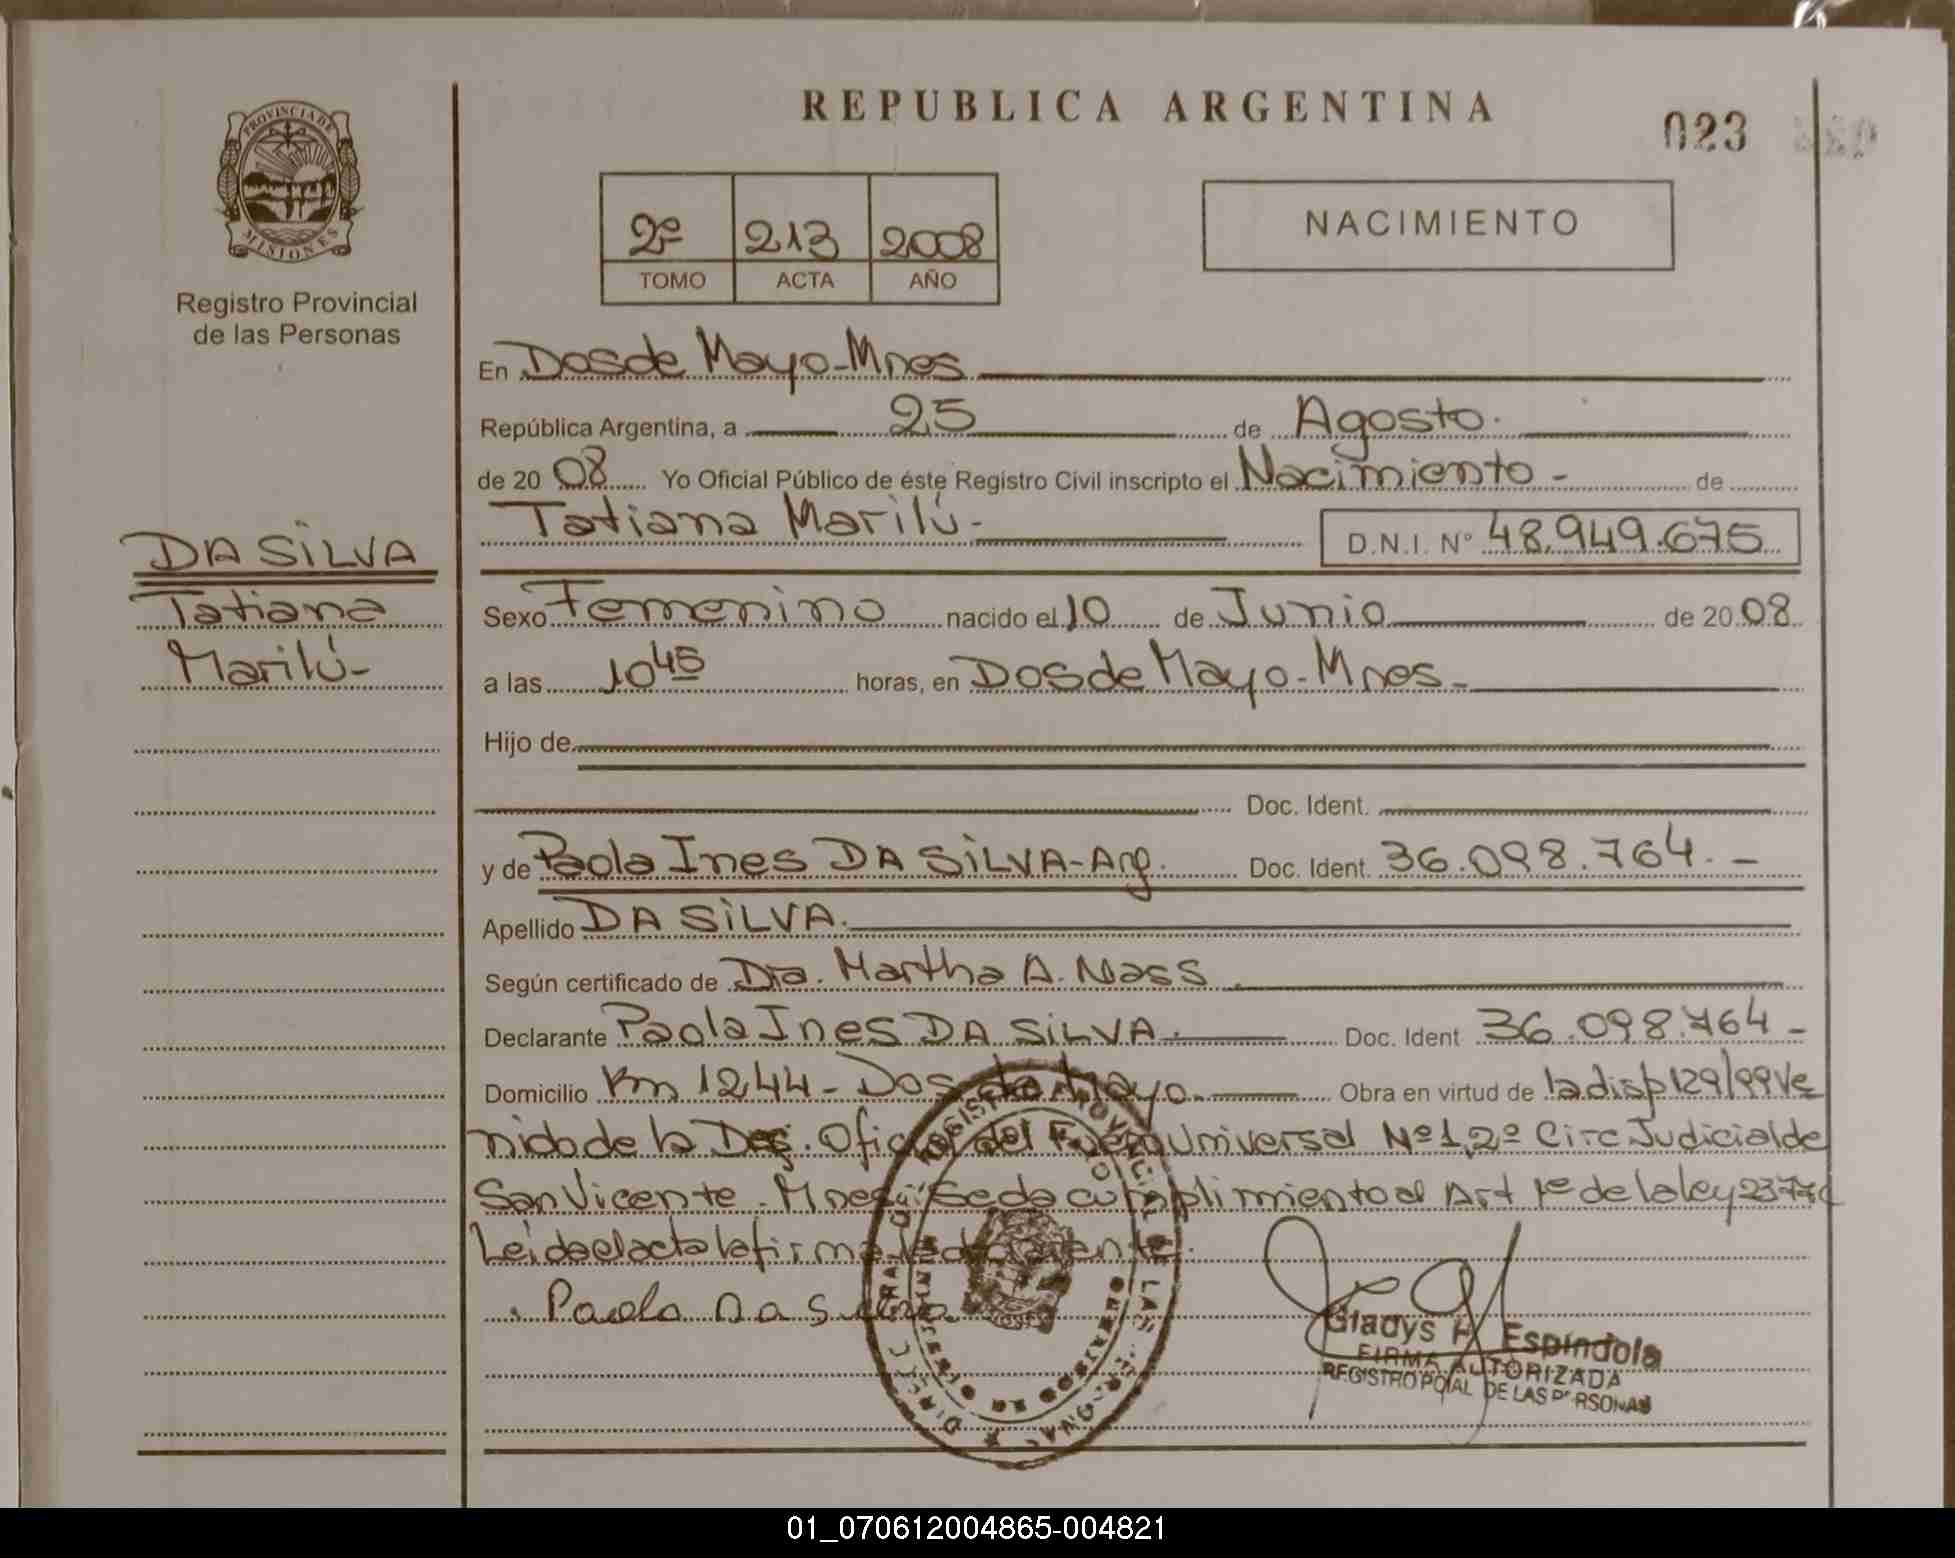 REPUBLICA ARGENTINA
023
PROVINCIA DE
MISIONES
Registro Provincial
de las Personas
2º 213 2008
TOMO ACTA AÑO
NACIMIENTO
En Dos de Mayo - Mnes
República Argentina, a 25 de Agosto.
de 20 08 Yo Oficial Público de éste Registro Civil inscripto el Nacimiento - de
Tatiana Marilú - D.N.I. N° 48.949.675
DA SiLVA
Tatiana
Marilú -
Sexo Femenino nacido el 10 de Junio de 20 08
a las 10 45 horas, en Dos de Mayo - Mnes -
Hijo de
Doc. Ident.
y de Paola Ines DA SiLVA - Arg. Doc. Ident. 36.098.764. -
Apellido DA SiLVA.
Según certificado de Dra. Martha A. Nass
Declarante Paola Ines DA SiLVA. Doc. Ident 36.098.764 -
Domicilio Km 1244 - Dos de Mayo. Obra en virtud de la disp 129/99 Ve
nido de la Def. Oficial del Fuero Universal Nº 1, 2º Circ Judicial de
San Vicente - Mnes. Se da cumplimiento al Art 1º de la ley
Leida el acta la firma la declarante.
Paola Da Silva
Gladys H. Espindola
FIRMA AUTORIZADA
REGISTRO PCIAL DE LAS PERSONAS
01_070612004865-004821